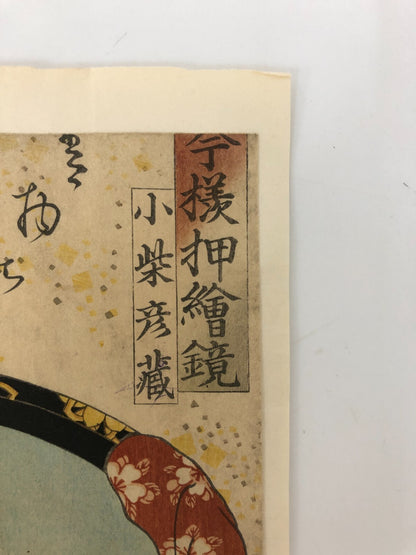 今様押繪鏡
小柴彦藏